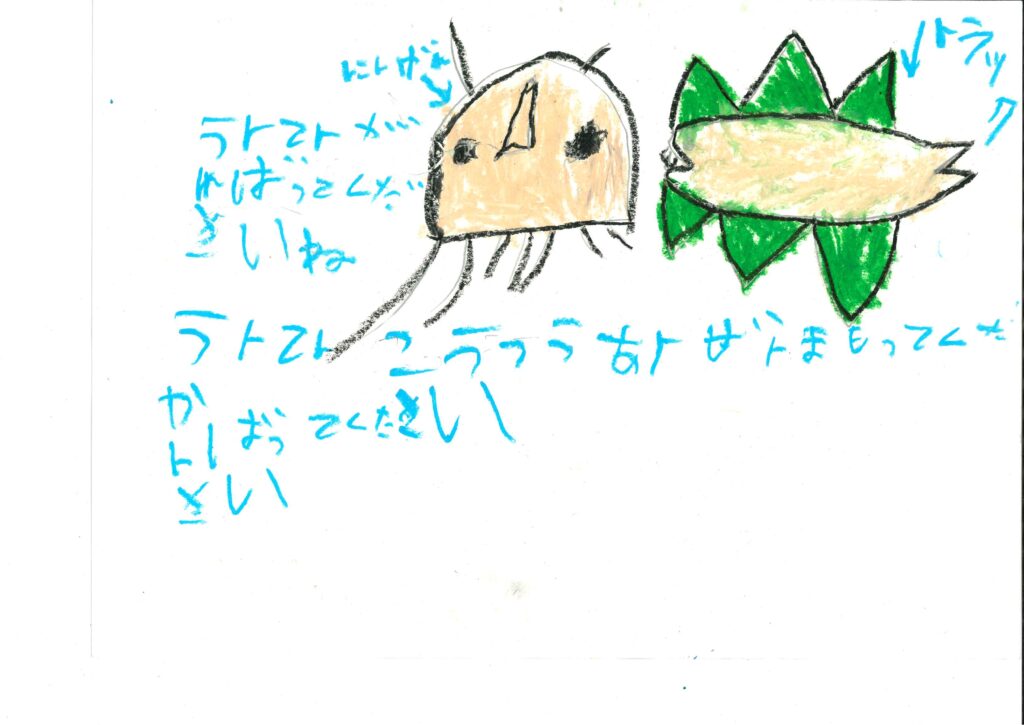 にんげん
トラック
うんてんが
んばってくだ
さいね
うんてんこうつうあんぜんまもってくだ
か
んばってください
さい